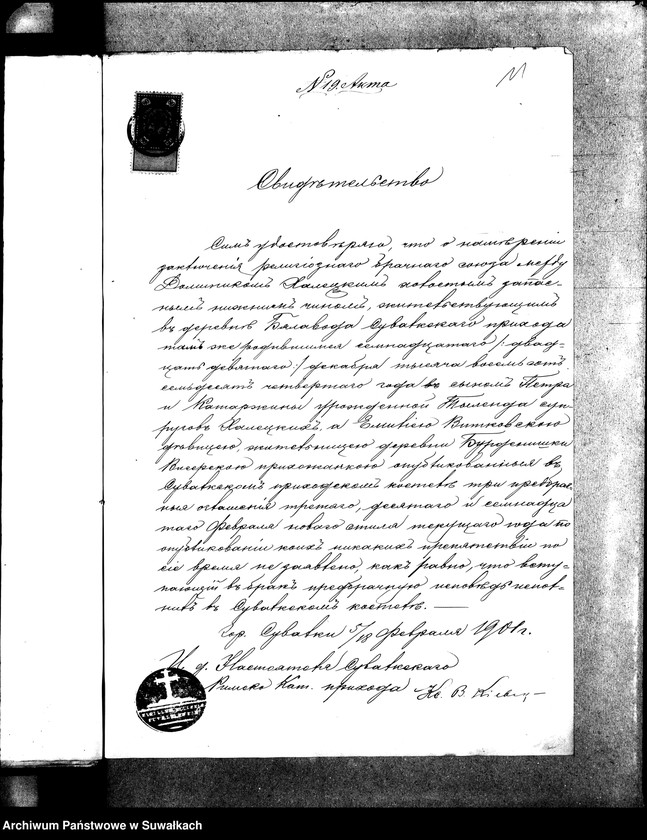 № 19. Акта
11
Свидѣтельство
Симъ удостовѣряю, что о намѣреніи
заключенія религіознаго брачнаго союза между
Доминикомъ Халецкимъ холостымъ запас-
нымъ нижнимъ чиномъ, жительствующимъ
въ деревнѣ Бялавода Сувалкскаго прихода
тамъ же родившимся семнадцатаго /: двад-
цать девятаго :/ декабря тысяча восемьсотъ
семьдесятъ четвертаго года въ сыномъ Петра
и Катаржины урожденной супру-
говъ Халецкихъ, а Емиліею Витковскою
дѣвицею, жительницею деревни Бурденишки
прихожанкою опубликованныя въ
Сувалкскомъ приходскомъ костелѣ три предбрач-
ныя оглашенія третьяго, десятаго и семнадца-
таго Февраля новаго стиля текущаго года по
опубликованіи коихъ никакихъ препятствій по
сіе время не заявлено, какъ равно, что всту-
пающій въ бракъ предбрачную исповѣдь испол-
нилъ въ Сувалкскомъ костелѣ. —
Гор. Сувалки 5/18 Февраля 1901 г.
И. д. Настоятеля Сувалкскаго
Римско Кат. прихода Кс. В.
Archiwum Państwowe w Suwałkach